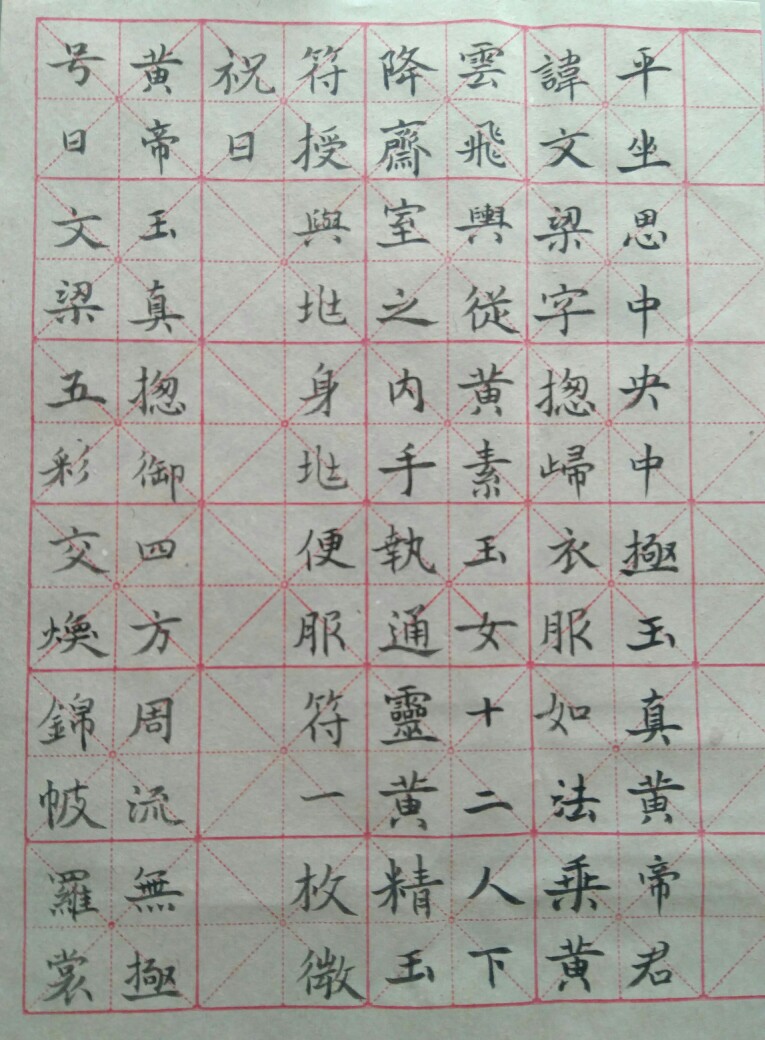 平坐思中央中極玉真黄帝君
諱文梁字揔歸衣服如法乗黄
雲飛輿從黄素玉女十二人下
降齋室之内手執通靈黄精玉
符授與兆身兆便服符一枚微
祝曰
黄帝玉真揔御四方周流無極
号曰文梁五彩交煥錦帔羅裳